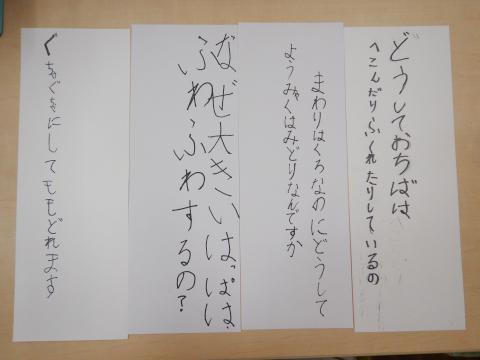 どうしておちばは
へこんだりふくれたりしているの
まわりはくろなのにどうして
ようみゃくはみどりなんですか
なぜ大きいはっぱは
ふわふわするの?
ぐちゃぐちゃにしてももどれます